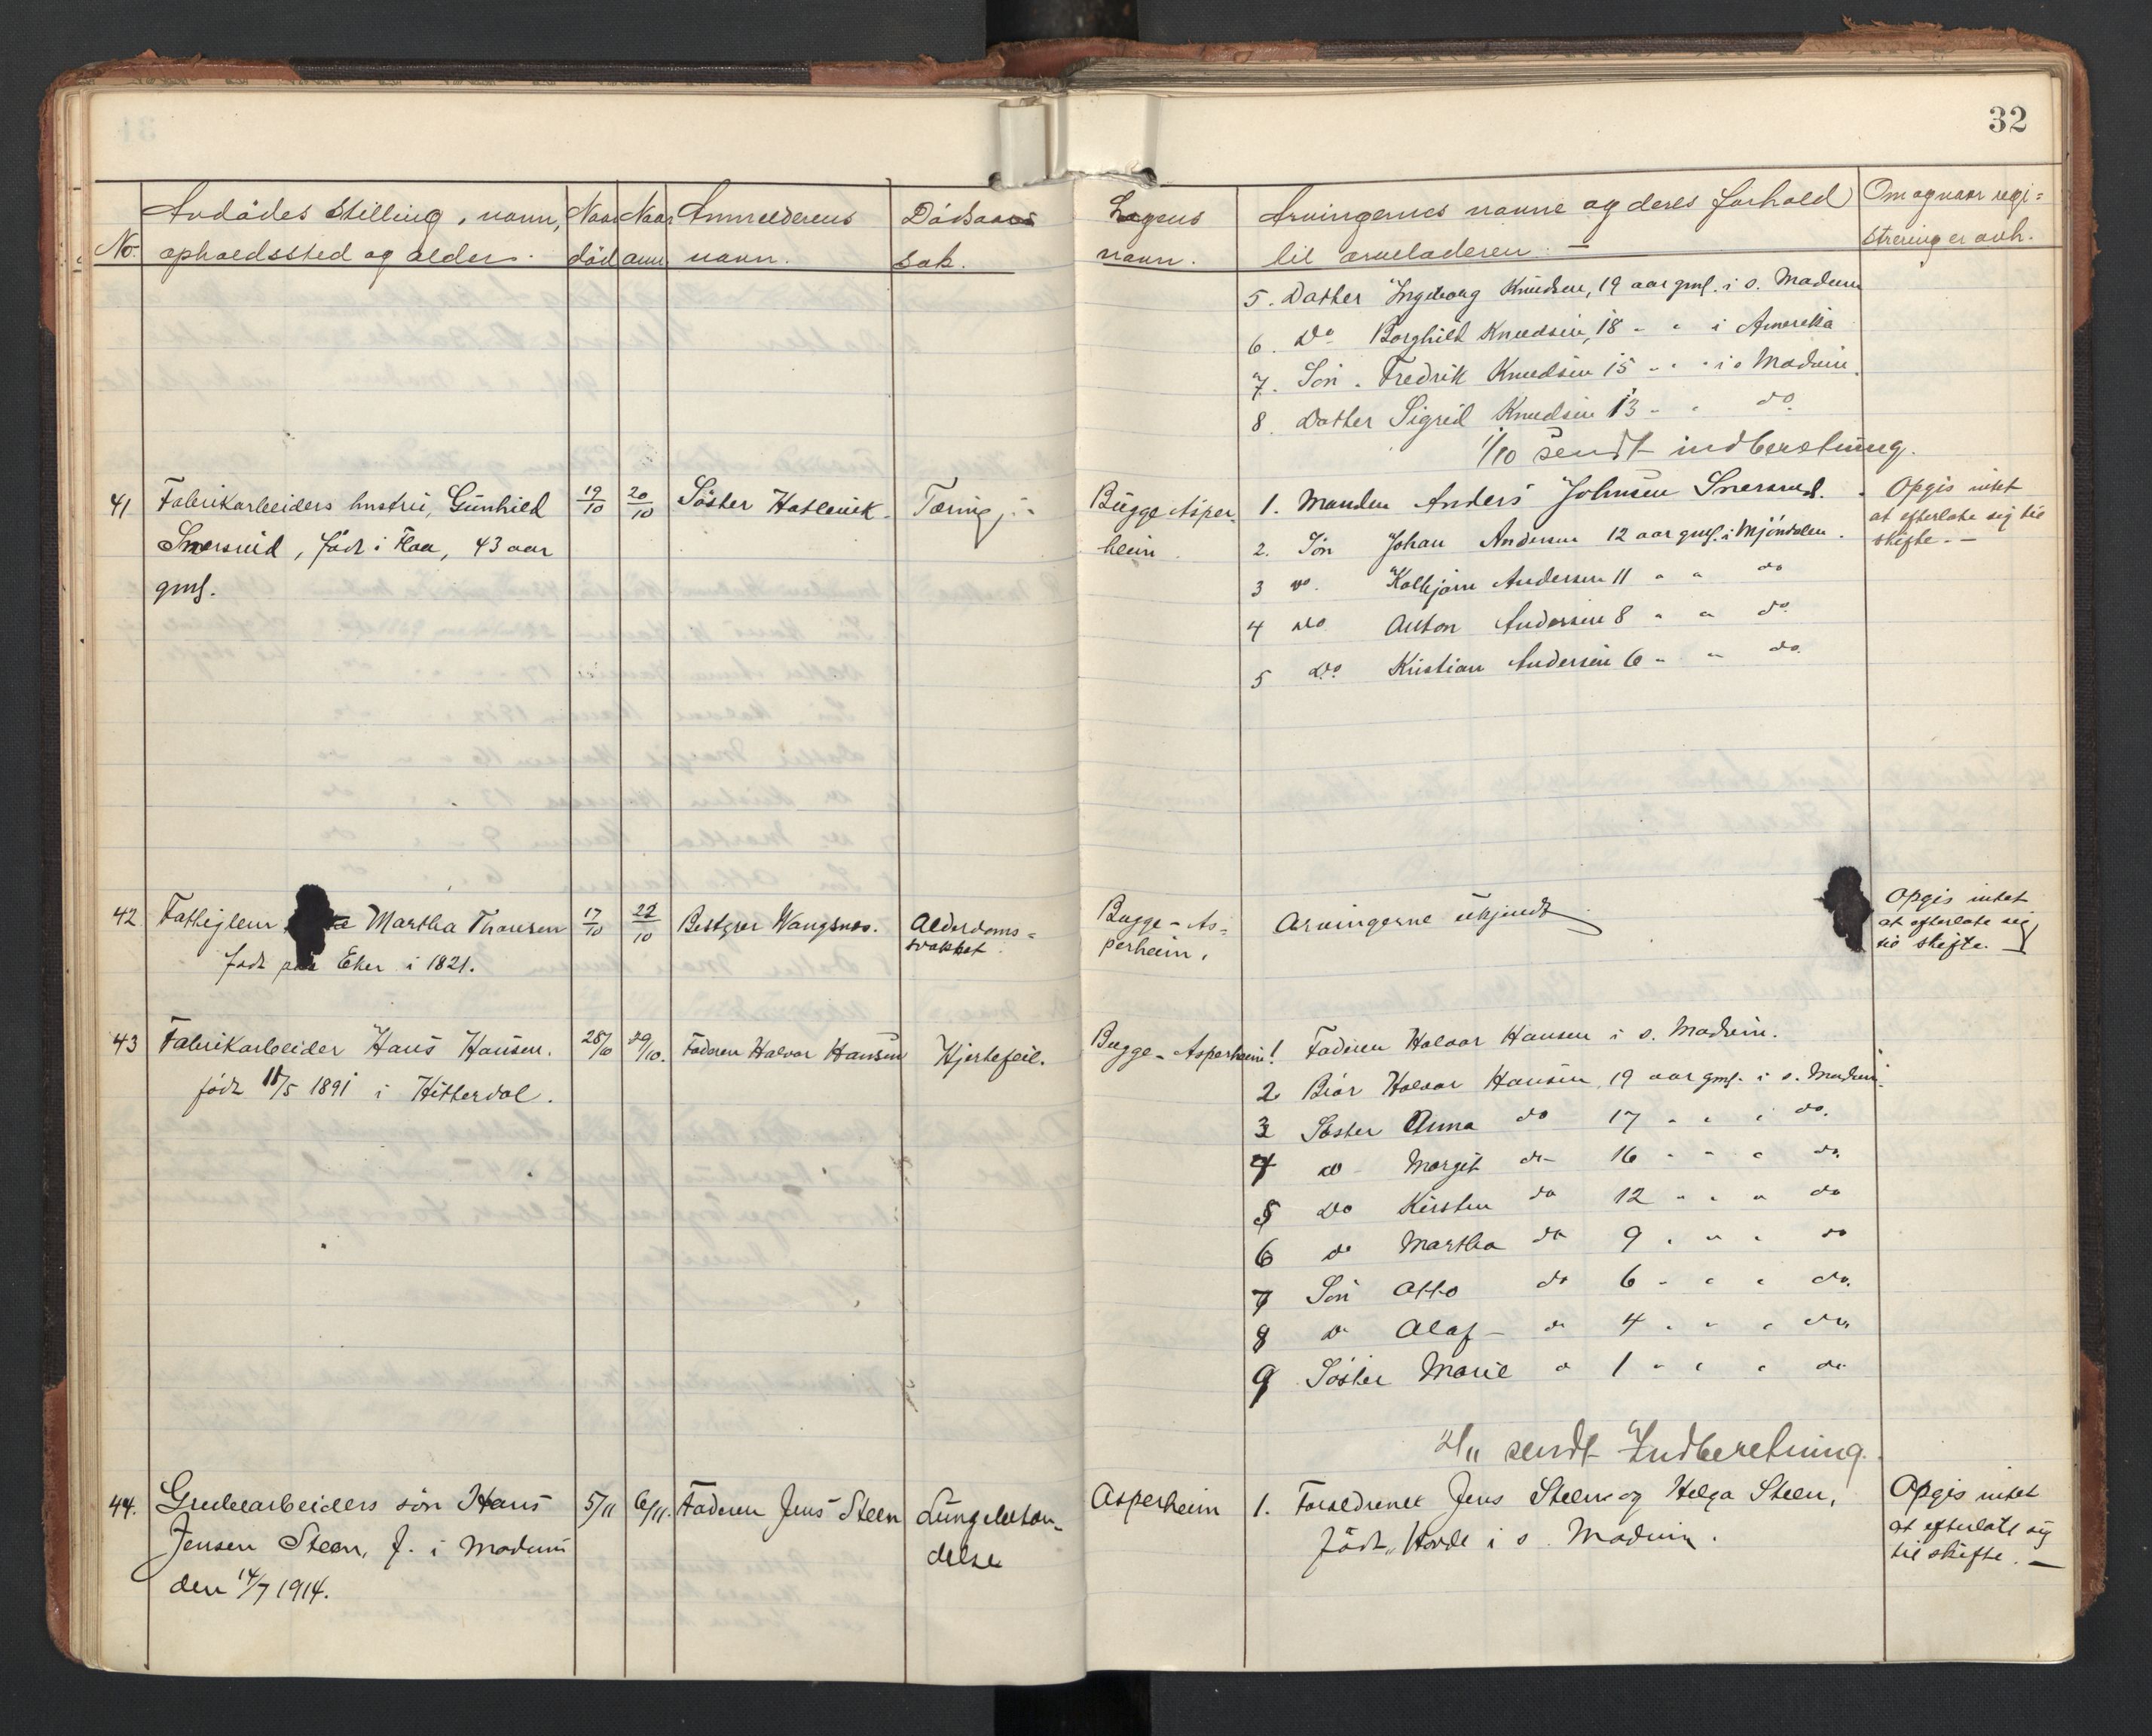 32
No.
Avdødes stilling, navn,
opholdssted og alder.
Naar
død
Naar
anm
Anmelderens
navn.
Dødsaars
sak.
Lægens
navn.
Arvingernes navne og deres forhold
til arveladeren: —
Om og naar regi=
strering er avh.
5. Datter Ingeborg Knudsen, 19 aar gml. i s. Modum
6. Do Borghild Knudsen, 18 " " i Amerika
7. Søn. Fredrik Knudsen 15 " " " i s Modum.
8. Datter Sigrid Knudsen 13 " " do
1/10 sendt indberetning.
41 Fabrikarbeiders hustru, Gunhild
Snersrud, født i Flaa, 43 aar
gml.
19/10
20/10
Søster Hatlevik.
Tæring
Bugge Asper-
heim.
1. Manden Anders Johnsen Snersrud.
2. Søn Johan Andersen 12 aar gml. i Mjøndalen.
3 do. Kolbjørn Andersen 11 " " do
4 do Anton Andersen 8 " " do.
5 Do. Kristian Andersen 6 " " do.
Opgis intet
at efterlate sig til
skifte. —
42 Fattiglem Martha Thoresen
født paa Eker i 1821.
17/10
22/10
Bestyrer Wangsnes.
Alderdoms=
svakhet.
Bugge - As=
perheim.
Arvingerne ukjendt
Opgis intet
at efterlate sig
til skifte. —
43 Fabrikarbeider Hans Hansen.
født 11/5 1891 i Hitterdal.
28/10
29/10.
Faderen Halvor Hansen
Hjertefeil.
Bugge - Asperheim
1 Faderen Halvor Hansen i s. Modum.
2 Bror Halvor Hansen, 19 aar gml. i s. Modum.
3 Søster Anna do 17 " " i do.
4 do - Margit do - 16 " " " do.
5 Do Kirsten do 12 " " " do
6 do Martha do 9 " " " do
7 Søn Otto do 6 " " " do.
8 do Olaf - do 4 " " " do.
9 Søster Marie do 1 " " " do
2/11 sendt Indberetning.
44. Grubearbeiders søn Hans
Jensen Steen, f. i Modum
den 14/7 1914.
5/11
6/11.
Faderen Jens Steen
Lungebetæn-
delse
Asperheim
1. Forældrene Jens Steen og Helga Steen,
født Hovde i s. Modum.
Opgis intet
at efterlate sig
til skifte. —